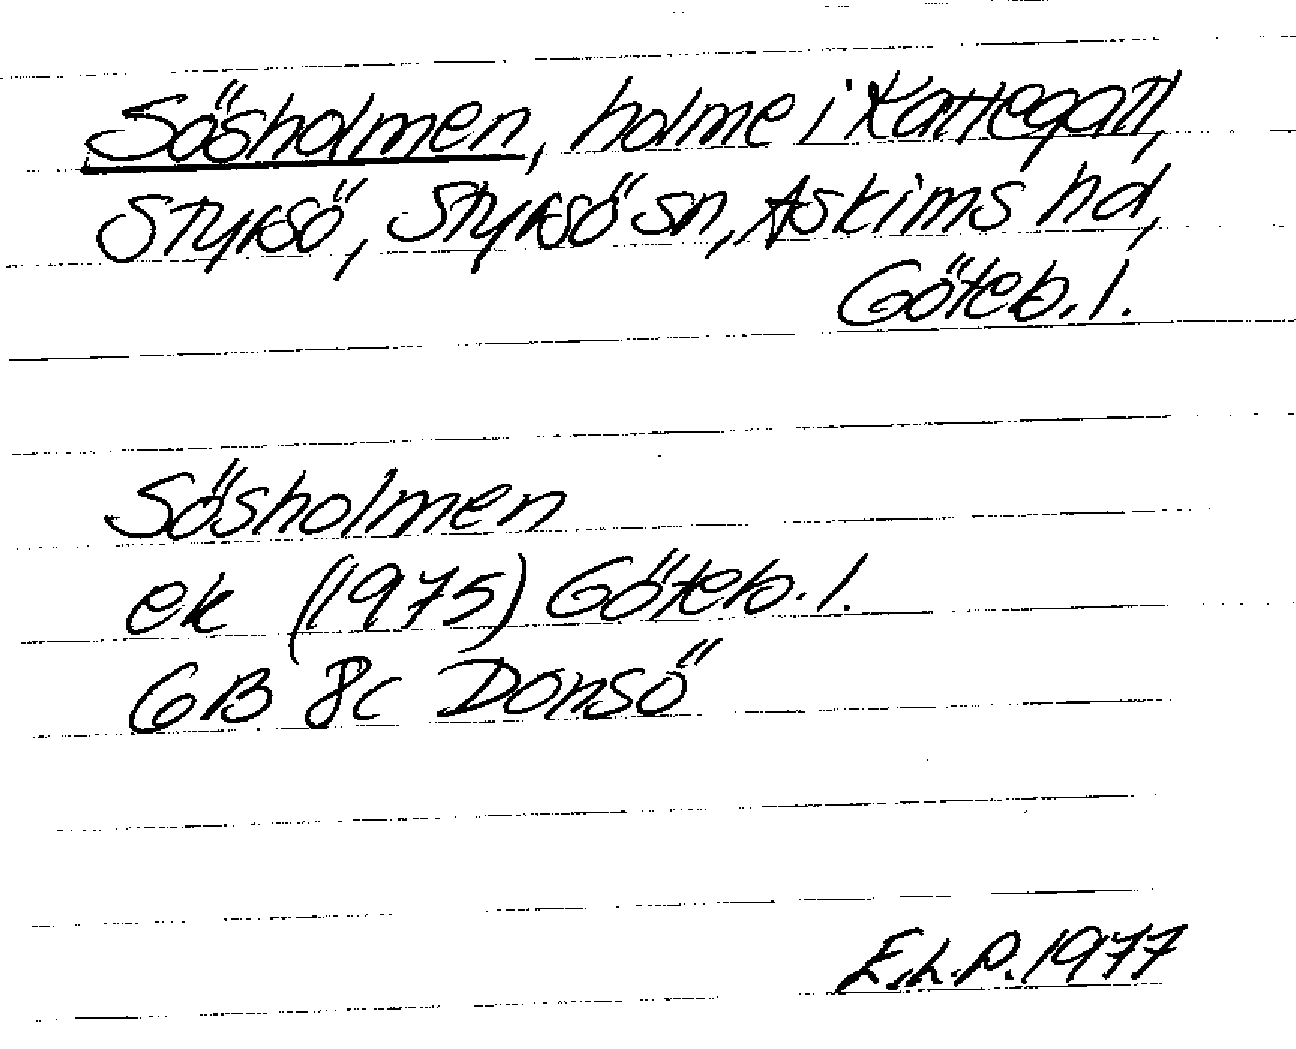 Sösholmen, holme i Kattegatt,
Styrsö, Styrsö sn, Askims hd,
Göteb. l.
Sösholmen
ek (1975) Göteb. l.
GB 8c Donsö
E.L.P. 1977